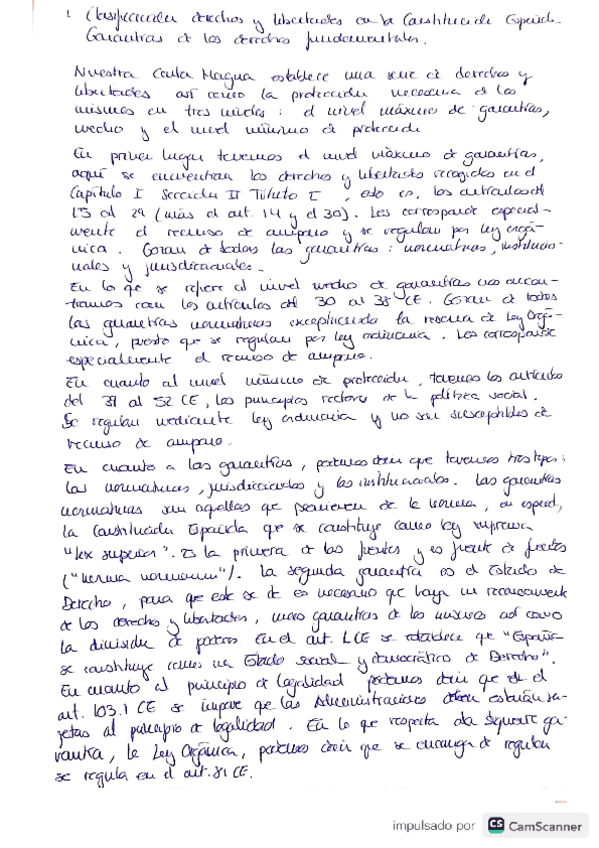 1. Clasificación derechos y libertades en la Constitución Española.
Garantías de los derechos fundamentales.
Nuestra Carta Magna establece una serie de derechos y
libertades así como la protección necesaria de los
mismos en tres niveles: el nivel máximo de garantías,
medio y el nivel mínimo de protección.
En primer lugar tenemos el nivel máximo de garantías,
aquí se encuentran los derechos y libertades recogidos en el
Capítulo I Sección II Título I, esto es, los artículos del
15 al 29 (más el art. 14 y el 30). Les corresponde especial-
mente el recurso de amparo y se regulan por ley orgá-
nica. Gozan de todas las garantías: normativas, institucio-
nales y jurisdiccionales.
En lo que se refiere al nivel medio de garantías nos encon-
tramos con los artículos del 30 al 38 CE. Gozan de todas
las garantías normativas exceptuando la reserva de Ley Orgá-
nica, puesto que se regulan por ley ordinaria. Les corresponde
especialmente el recurso de amparo.
En cuanto al nivel mínimo de protección, tenemos los artículos
del 39 al 52 CE, los principios rectores de la política social.
Se regulan mediante ley ordinaria y no son susceptibles de
recurso de amparo.
En cuanto a las garantías, podemos decir que tenemos tres tipos:
las normativas, jurisdiccionales y las institucionales. Las garantías
normativas son aquellas que provienen de la norma, en especial,
la Constitución Española que se constituye como ley suprema
"lex superior". Es la primera de las fuentes y es fuente de fuentes
("norma normarum"). La segunda garantía es el Estado de
Derecho, para que este se dé es necesario que haya un reconocimiento
de los derechos y libertades, unas garantías de los mismos así como
la división de poderes. En el art. 1 CE se establece que "España
se constituye como un Estado social y democrático de Derecho".
En cuanto al principio de legalidad podemos decir que en el
art. 103.1 CE se impone que las Administraciones estarán su-
jetas al principio de legalidad. En lo que respecta a la siguiente ga-
rantía, la Ley Orgánica, podemos decir que se encarga de regular
se regula en el art. 81 CE.
impulsado por CS CamScanner